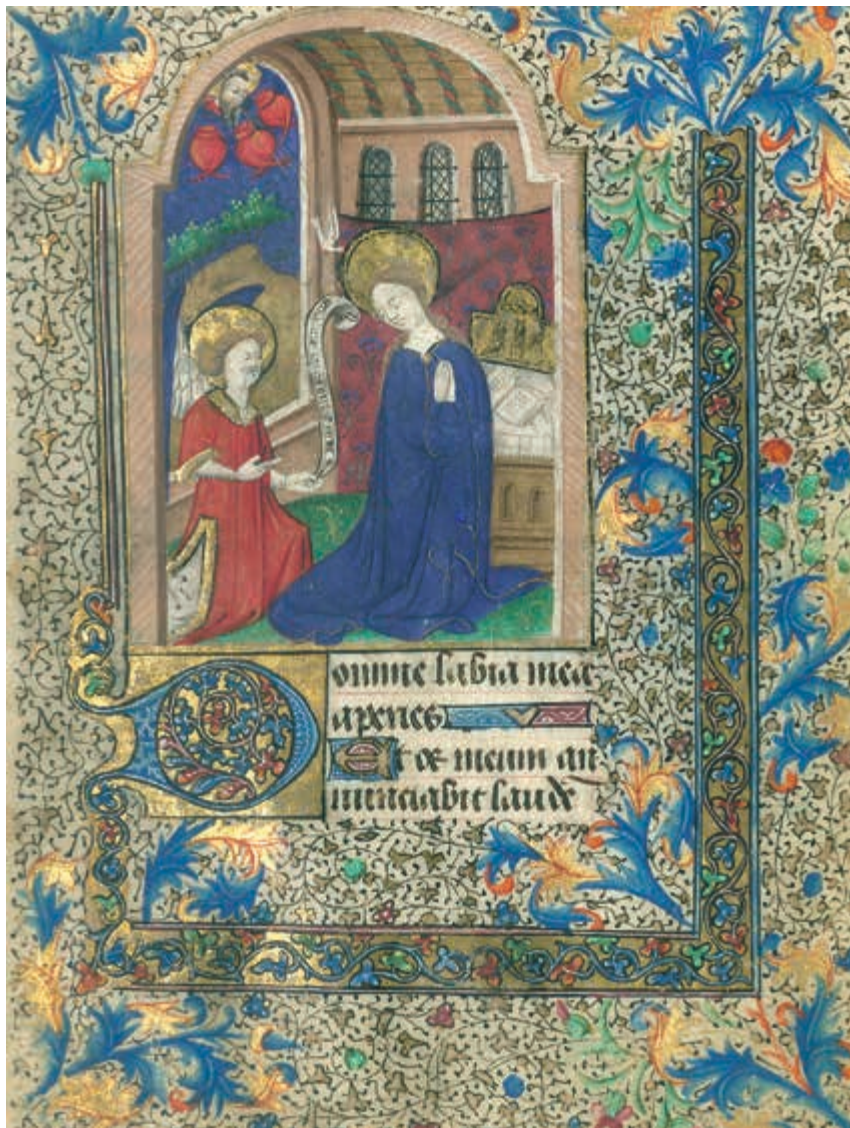 Domine labia mea
aperies
Et os meum an
nunciabit laude